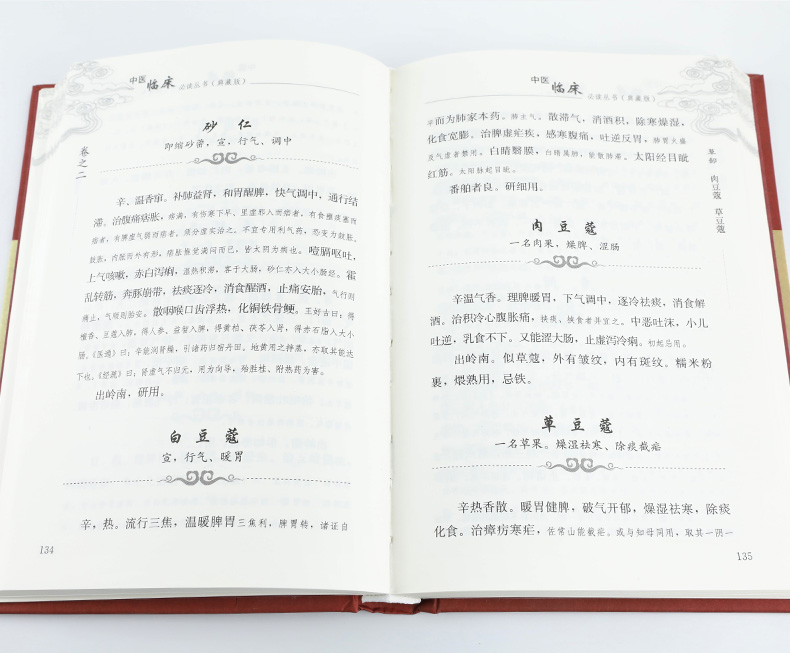 中医 临床 必读丛书（典藏版）
卷之二
砂仁
即缩砂蔤，宣，行气、调中
辛、温香窜。补肺益肾，和胃醒脾，快气调中，通行结
滞。治腹痛痞胀，痞满，有伤寒下早、里虚邪入而痞者，有食壅痰塞而
痞者，有脾虚气弱而痞者。须分虚实治之。不宜专用利气药，恐变为鼓胀。
鼓胀，内胀而外有形；痞胀惟觉满闷而已，皆太阴为病也。噎膈呕吐，
上气咳嗽，赤白泻痢，湿热积滞，客于大肠，砂仁亦入大小肠经。霍
乱转筋，奔豚崩带，祛痰逐冷，消食醒酒，止痛安胎，气行则
痛止，气顺则胎安。散咽喉口齿浮热，化铜铁骨鲠。王好古曰：得
檀香、豆蔻入肺，得人参、益智入脾，得黄柏、茯苓入肾，得赤石脂入大小
肠。《医通》曰：辛能润肾燥，引诸药归宿丹田。地黄用之拌蒸，亦取其能达
下也。《经疏》曰：肾虚气不归元，用为向导，殆胜桂、附热药为害。
出岭南，研用。
白豆蔻
宣，行气、暖胃
辛，热。流行三焦，温暖脾胃三焦利，脾胃转，诸证自
134
中医 临床 必读丛书（典藏版）
平而为肺家本药。肺主气。散滞气，消酒积，除寒燥湿，
化食宽膨。治脾虚疟疾，感寒腹痛，吐逆反胃，肺胃火盛
及气虚者禁用。白睛翳膜，白睛属肺，能散肺滞。太阳经目眦
红筋。太阳脉起目眦。
番舶者良。研细用。
肉豆蔻
一名肉果，燥脾、涩肠
辛温气香。理脾暖胃，下气调中，逐冷祛痰，消食解
酒。治积冷心腹胀痛，挟痰、挟食者并宜之。中恶吐沫，小儿
吐逆，乳食不下。又能涩大肠，止虚泻冷痢。初起忌用。
出岭南。似草蔻，外有皱纹，内有斑纹。糯米粉
裹，煨熟用，忌铁。
草豆蔻
一名草果。燥湿祛寒、除痰截疟
辛热香散。暖胃健脾，破气开郁，燥湿祛寒，除痰
化食。治瘴疠寒疟，佐常山能截疟。或与知母同用，取其一阴一
135
草部 肉豆蔻 草豆蔻